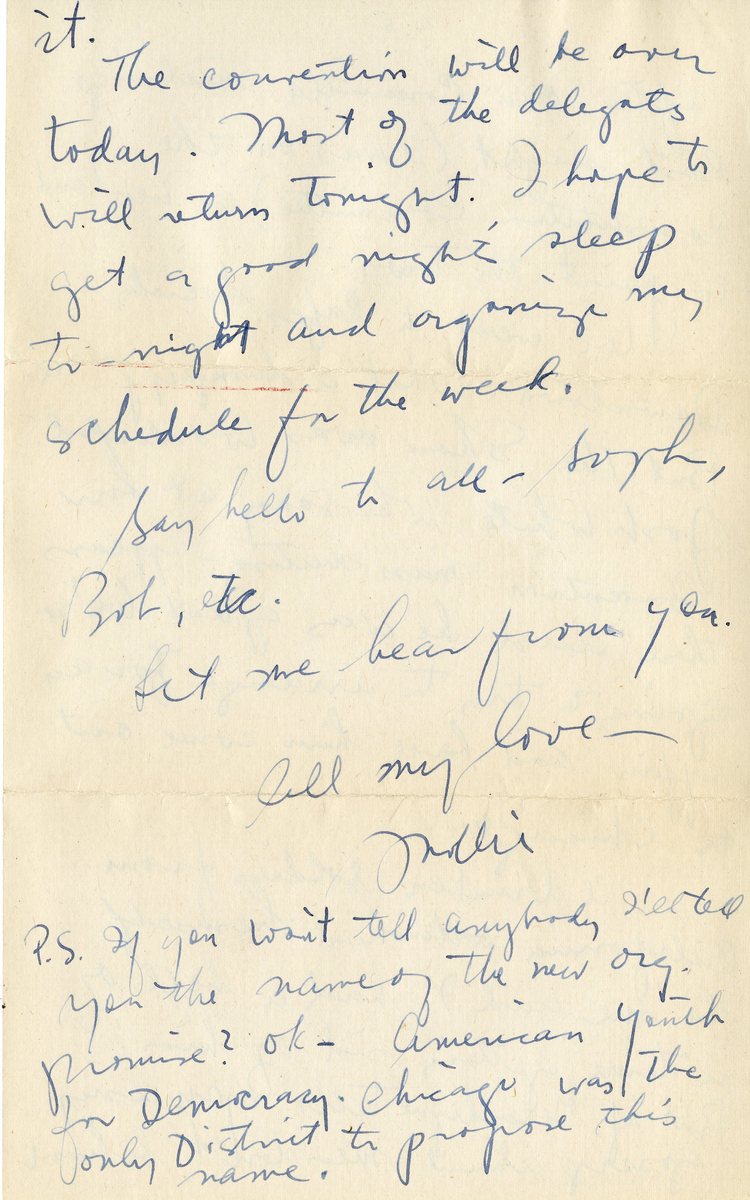 it.
The convention will be over
today. Most of the delegats
will return tonight. I hope to
get a good night's sleep
to-night and organize my
schedule for the week.
Say hello to all - Soph,
Bob, etc.
Let me hear from you.
All my love—
Mollie
P.S. If you won't tell anybody I'll tell
you the name of the new org.
promise? OK - American Youth
for Democracy. Chicago was the
only District to propose this
name.